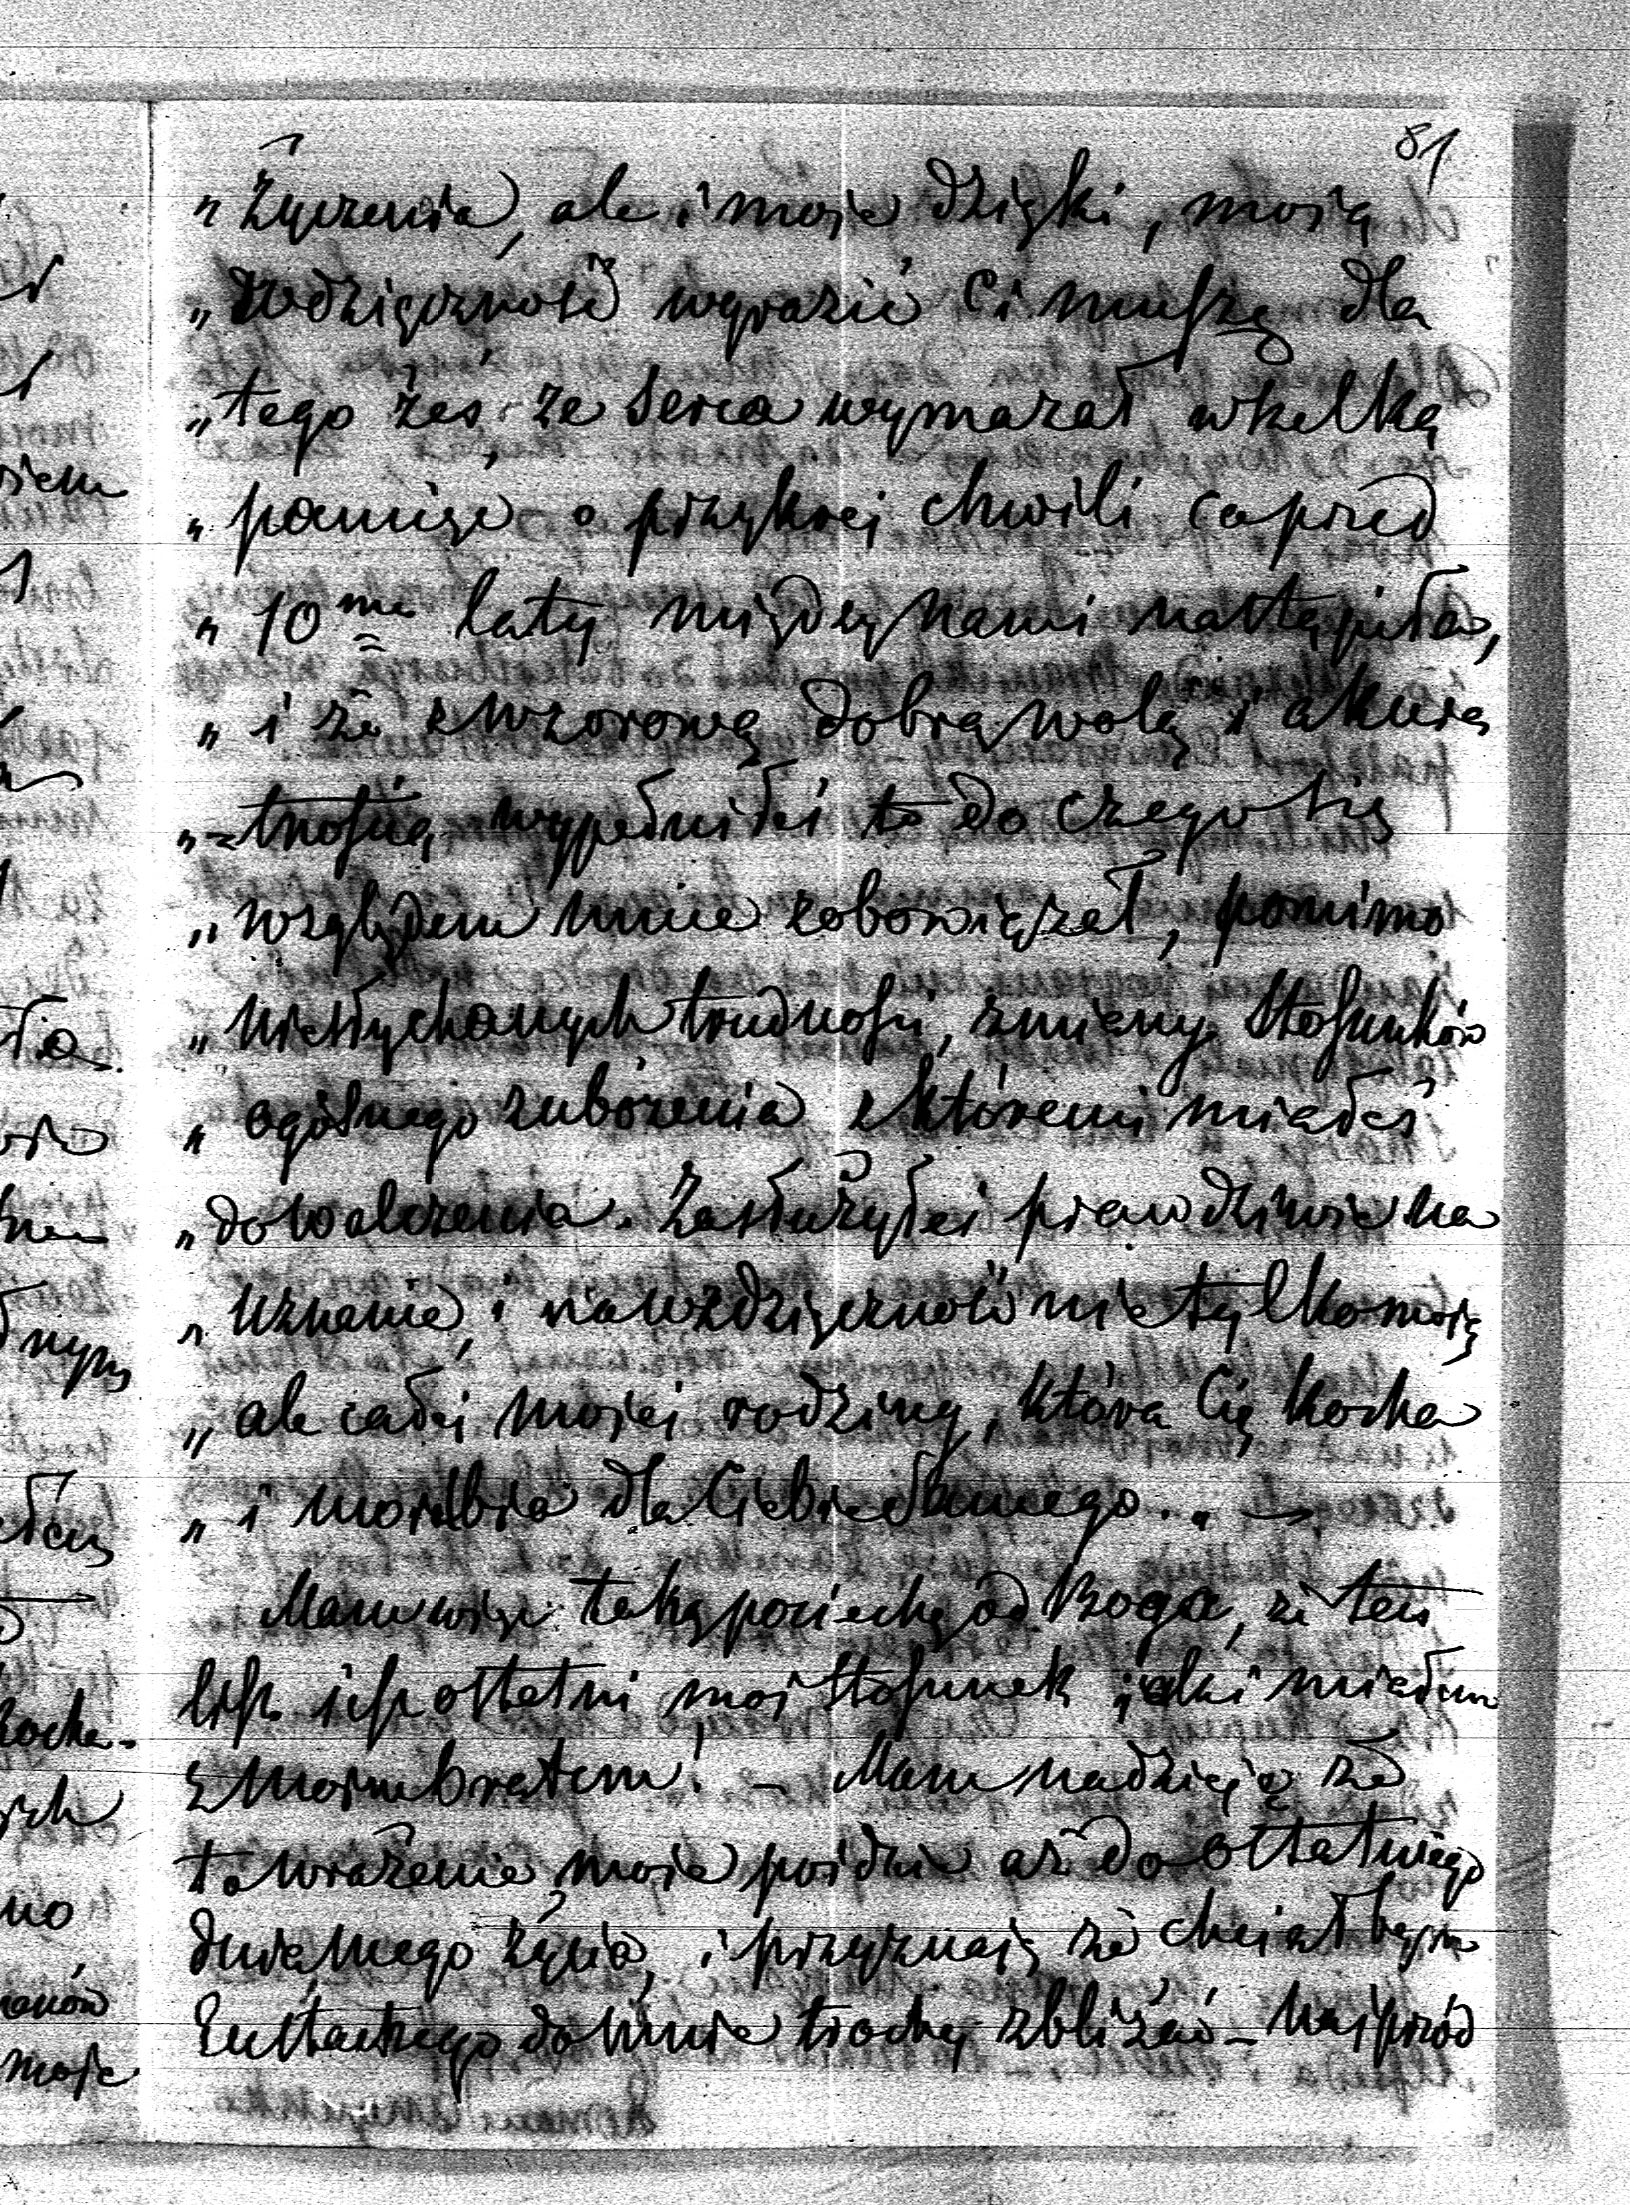 81
„ Życzenia, ale i moje dzięki, moją
„ wdzięczność wyrazić Ci muszę dla
„ tego żeś, ze serca wymazał wszelką
„ pamięć o przykrej chwili co przed
„ 10ma laty między nami nastąpiła,
„ i że z wzorową dobrą wolą i akura
„ -tnością wypełniłeś to do czegoś się
„ względem mnie zobowiązał, pomimo
„ niesłychanych trudności, zmiany stosunków
„ ogólnego zubożenia z któremi miałeś
„ do walczenia. Zasłużyłeś prawdziwie na
„ Uznanie, i na wdzięczność nie tylko moją
„ ale całej mojej rodziny, która Cię kocha
„ i
Mam więc taką pociechę od Boga, że ten
list jest ostatni mój stosunek jaki miałem
z moim bratem! – Mam nadzieję że
to wrażenie moje pójdzie aż do ostatniego
dnia mego życia, i przyznaję że chciałbym
Eustachego do mnie trochę zbliżać – najprzód